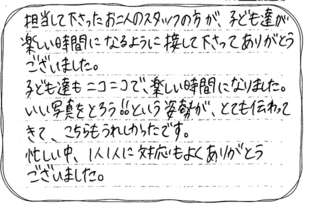 担当して下さったお二人のスタッフの方が、子ども達が
楽しい時間になるように接して下さってありがとう
ございました。
子ども達もニコニコで、楽しい時間になりました。
いい写真をとろう!!という姿勢が、とても伝わって
きて、こちらもうれしかったです。
忙しい中、1人1人に対応もよくありがとう
ございました。